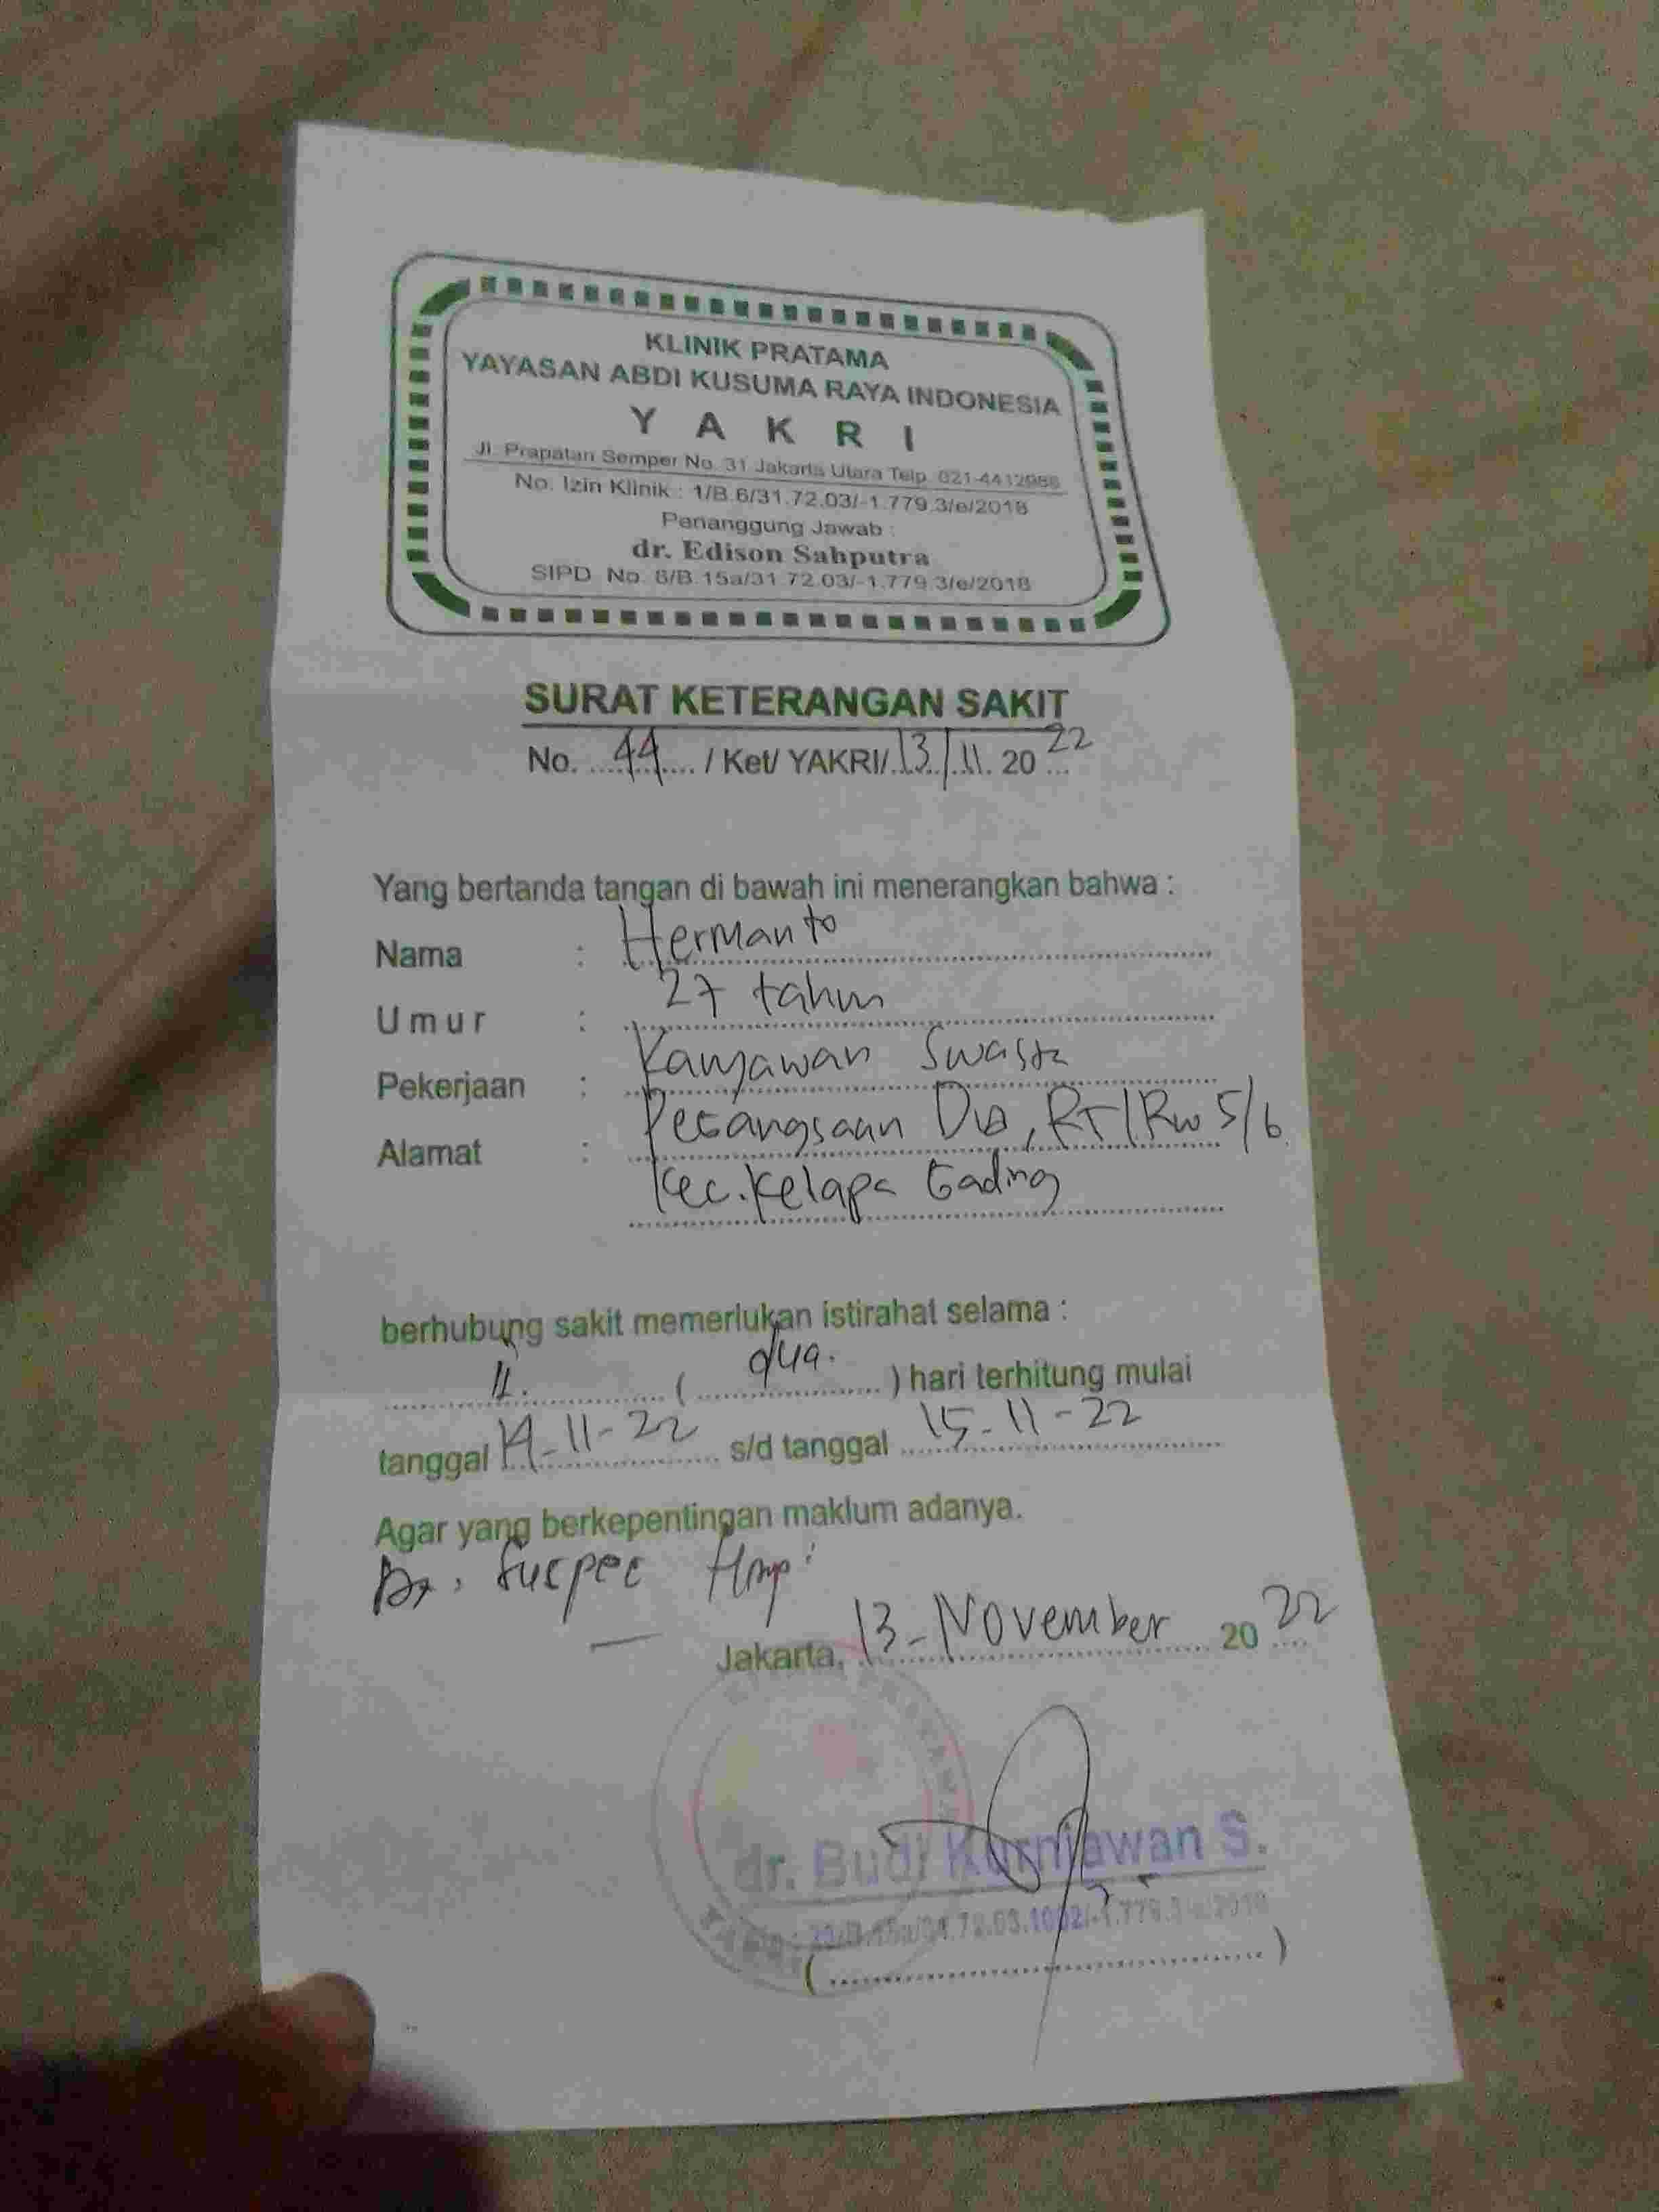 KLINIK PRATAMA
YAYASAN ABDI KUSUMA RAYA INDONESIA
Y A K R I
Jl. Prapatan Semper No. 31 Jakarta Utara Telp. 021-4412986
No. Izin Klinik : 1/B.6/31.72.03/-1.779.3/e/2018
Penanggung Jawab :
dr. Edison Sahputra
SIPD No. 8/B.15a/31.72.03/-1.779.3/e/2018
SURAT KETERANGAN SAKIT
No. 44 / Ket/ YAKRI/ 13/11. 20 22
Yang bertanda tangan di bawah ini menerangkan bahwa :
Nama : Hermanto
Umur : 27 tahun
Pekerjaan : Karyawan Swasta
Alamat : Pegangsaan Dua, RT/RW 5/6
Kec. Kelapa Gading
berhubung sakit memerlukan istirahat selama :
II. ( dua. ) hari terhitung mulai
tanggal 14-11-22 s/d tanggal 15-11-22
Agar yang berkepentingan maklum adanya.
Dx. Suspec
Jakarta, 13-November 20 22
dr. Budi Kurniawan S.
( )